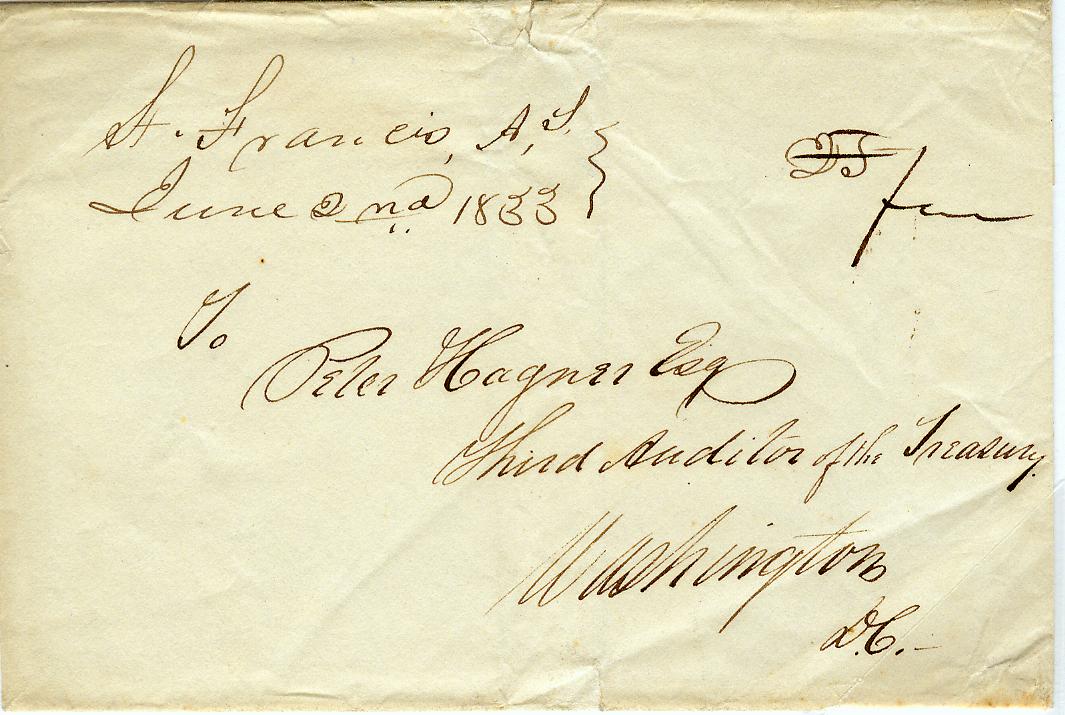 St. Francis, A, T.
June 2nd 1833
25
Free
To
Peter Hagner Esq
Third Auditor of the Treasury.
Washington
D.C.-